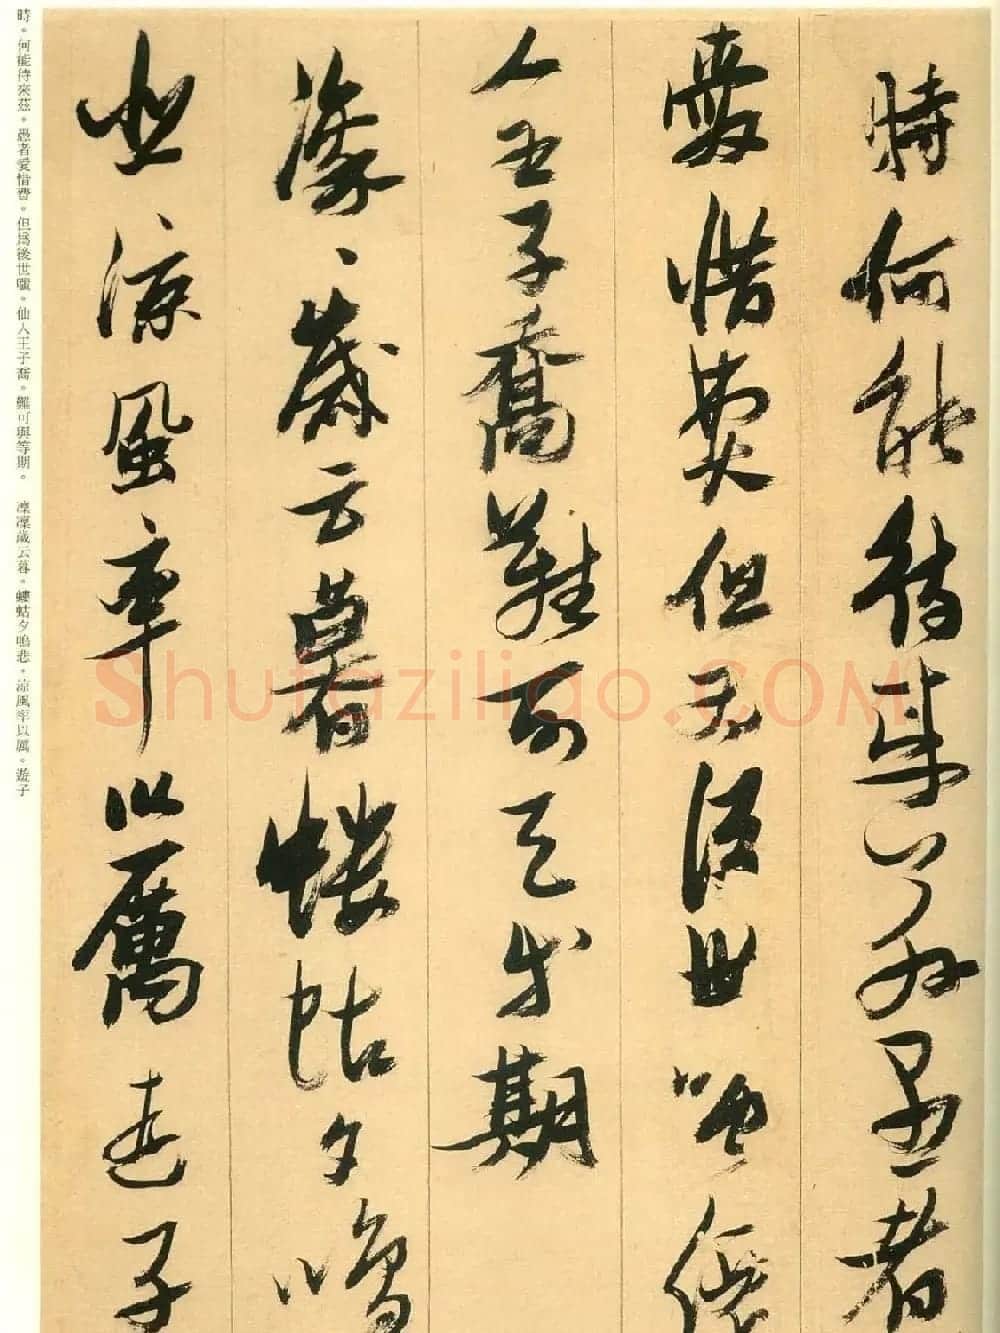 時何能待来茲愚者
愛惜費但為後世嗤僊
人王子喬難可與等期
凜〻歲云暮螻蛄夕鳴
悲涼風率以厲遊子
時。何能待來茲。愚者愛惜費。但爲後世嗤。仙人王子喬。難可與等期。 凜凜歲云暮。螻蛄夕鳴悲。涼風率以厲。遊子
Shufaziliao.COM